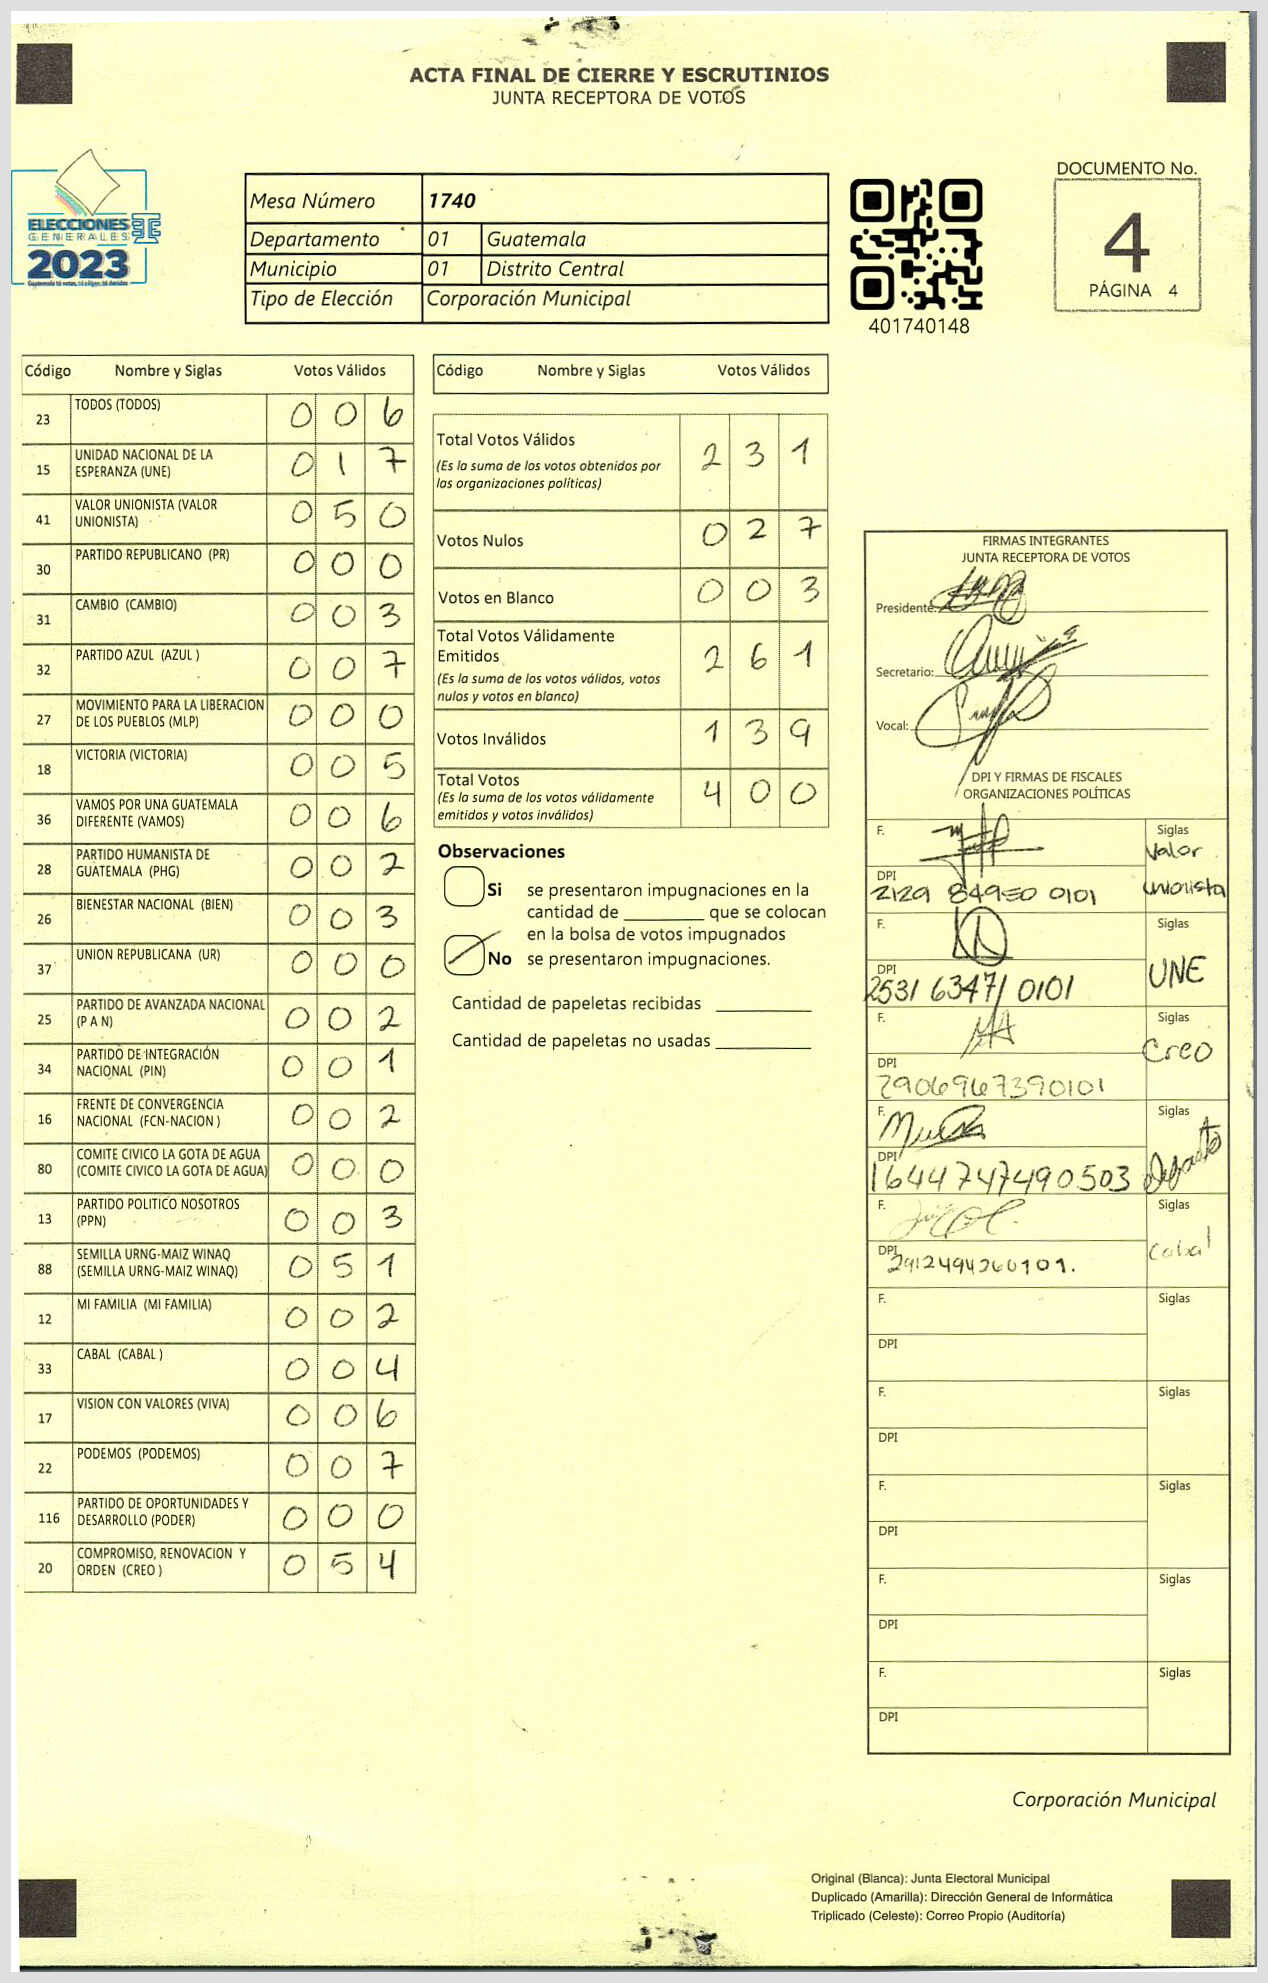 ACTA FINAL DE CIERRE Y ESCRUTINIOS
JUNTA RECEPTORA DE VOTOS
ELECCIONES
GENERALES
2023
Mesa Número 1740
Departamento 01 Guatemala
Municipio 01 Distrito Central
Tipo de Elección Corporación Municipal
401740148
DOCUMENTO No.
4
PÁGINA 4
Código Nombre y Siglas Votos Válidos
23 TODOS (TODOS) 0 0 6
15 UNIDAD NACIONAL DE LA
ESPERANZA (UNE) 0 1 7
41 VALOR UNIONISTA (VALOR
UNIONISTA) 0 5 0
30 PARTIDO REPUBLICANO (PR) 0 0 0
31 CAMBIO (CAMBIO) 0 0 3
32 PARTIDO AZUL (AZUL ) 0 0 7
27 MOVIMIENTO PARA LA LIBERACION
DE LOS PUEBLOS (MLP) 0 0 0
18 VICTORIA (VICTORIA) 0 0 5
36 VAMOS POR UNA GUATEMALA
DIFERENTE (VAMOS) 0 0 6
28 PARTIDO HUMANISTA DE
GUATEMALA (PHG) 0 0 2
26 BIENESTAR NACIONAL (BIEN) 0 0 3
37 UNION REPUBLICANA (UR) 0 0 0
25 PARTIDO DE AVANZADA NACIONAL
(P A N) 0 0 2
34 PARTIDO DE INTEGRACIÓN
NACIONAL (PIN) 0 0 1
16 FRENTE DE CONVERGENCIA
NACIONAL (FCN-NACION ) 0 0 2
80 COMITE CIVICO LA GOTA DE AGUA
(COMITE CIVICO LA GOTA DE AGUA) 0 0 0
13 PARTIDO POLITICO NOSOTROS
(PPN) 0 0 3
88 SEMILLA URNG-MAIZ WINAQ
(SEMILLA URNG-MAIZ WINAQ) 0 5 1
12 MI FAMILIA (MI FAMILIA) 0 0 2
33 CABAL (CABAL ) 0 0 4
17 VISION CON VALORES (VIVA) 0 0 6
22 PODEMOS (PODEMOS) 0 0 7
116 PARTIDO DE OPORTUNIDADES Y
DESARROLLO (PODER) 0 0 0
20 COMPROMISO, RENOVACION Y
ORDEN (CREO ) 0 5 4
Código Nombre y Siglas Votos Válidos
Total Votos Válidos 2 3 1
(Es la suma de los votos obtenidos por
las organizaciones políticas)
Votos Nulos 0 2 7
Votos en Blanco 0 0 3
Total Votos Válidamente
Emitidos 2 6 1
(Es la suma de los votos válidos, votos
nulos y votos en blanco)
Votos Inválidos 1 3 9
Total Votos 4 0 0
(Es la suma de los votos válidamente
emitidos y votos inválidos)
Observaciones
Si se presentaron impugnaciones en la
cantidad de ________ que se colocan
en la bolsa de votos impugnados
No se presentaron impugnaciones.
Cantidad de papeletas recibidas
Cantidad de papeletas no usadas
FIRMAS INTEGRANTES
JUNTA RECEPTORA DE VOTOS
Presidente:
Secretario:
Vocal:
DPI Y FIRMAS DE FISCALES
ORGANIZACIONES POLÍTICAS
F. Siglas
Valor
DPI unionista
2129 84950 0101
F. Siglas
DPI UNE
2531 63471 0101
F. Siglas
DPI Creo
2906967390101
F. Siglas
DPI
1644747490503
F. Siglas
DPI Cabal
2912494260101.
F. Siglas
DPI
F. Siglas
DPI
F. Siglas
DPI
F. Siglas
DPI
F. Siglas
DPI
Corporación Municipal
Original (Blanca): Junta Electoral Municipal
Duplicado (Amarilla): Dirección General de Informática
Triplicado (Celeste): Correo Propio (Auditoría)